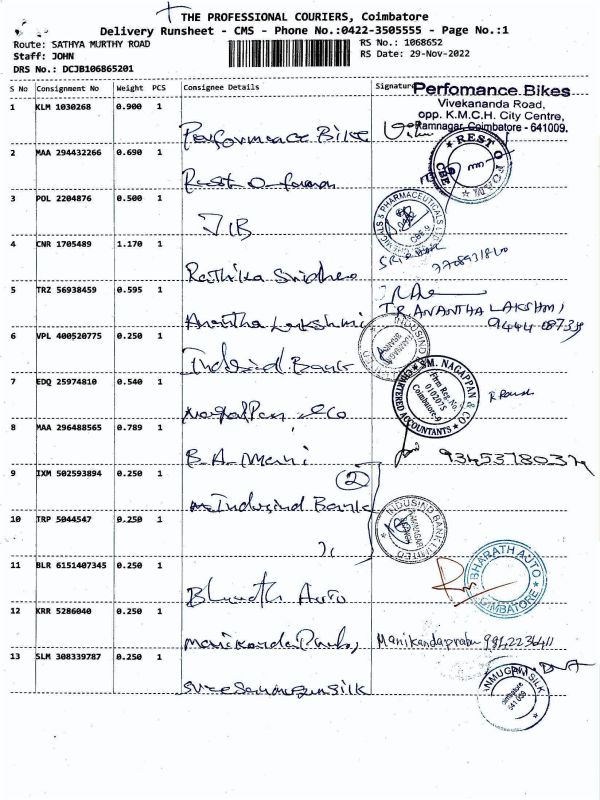 THE PROFESSIONAL COURIERS, Coimbatore
Delivery Runsheet - CMS - Phone No.:0422-3505555 - Page No.:1
Route: SATHYA MURTHY ROAD
Staff: JOHN
DRS No.: DCJB106865201
RS No.: 1068652
RS Date: 29-Nov-2022
S No Consignment No Weight PCS Consignee Details Signature
Perfomance Bikes
Vivekananda Road,
opp. K.M.C.H. City Centre,
Ramnagar, Coimbatore - 641009.
1 KLM 1030268 0.900 1
Performance Bikes
2 MAA 294432266 0.690 1
REST O FOAM
CBE
3 POL 2204876 0.500 1
JIB
& PHARMACEUTICALS
CBE-9
4 CNR 1705489 1.170 1
Rathika Sridhar
5 TRZ 56938459 0.595 1
Anantha Lakshmi
T.R ANANTHA LAKSHMI
6 VPL 400520775 0.250 1
Indusind Bank
INDUSIND
LIMITED
7 EDQ 25974810 0.540 1
Nagappan & Co
SM. NAGAPPAN & CO
CHARTERED ACCOUNTANTS
Firm Reg. No.
010207S
Coimbatore-9
8 MAA 296488565 0.789 1
B.A. Mani
9345378037
9 IXM 502593894 0.250 1
2
Indusind Bank
10 TRP 5044547 0.250 1
INDUSIND BANK LIMITED
11 BLR 6151407345 0.250 1
Bharath Auto
BHARATH AUTO
COIMBATORE
12 KRR 5286040 0.250 1
Manikanda Prabu
Manikandaprabu 9942236411
13 SLM 308339787 0.250 1
SILK
Coimbatore
641 009